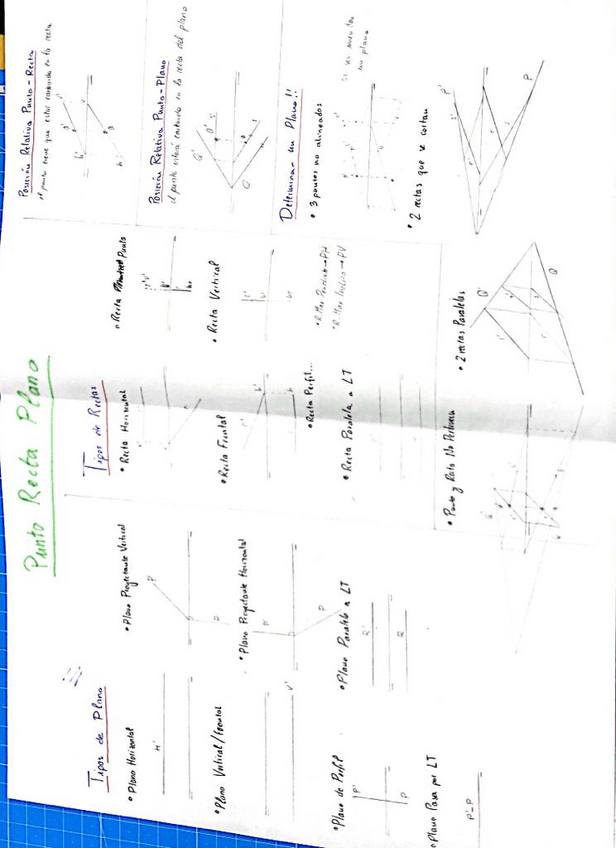 Punto Recta Plano
Tipos de Plano
• Plano Horizontal
H'
• Plano Vertical/frontal
V'
• Plano de Perfil
P'
P
• Plano Pasa por LT
P'-P
• Plano Proyectante Vertical
P'
P
• Plano Proyectante Horizontal
P'
P
• Plano Paralelo a LT
R'
R
Tipos de Rectas
• Recta Horizontal
• Recta Frontal
• Recta Perfil...
• Recta Paralela a LT
• Recta Punta
• Recta Vertical
Posición Relativa Punto-Recta
el punto tiene que estar contenido en la recta
Posición Relativa Punto-Plano
el punto estará contenido en la recta del plano
Q'
Q
Determinar un Plano!!
• 3 puntos no alineados
• 2 rectas que se cortan
P'
P
• Punto y Recta No Pertenece
• 2 rectas Paralelas
Q'
Q